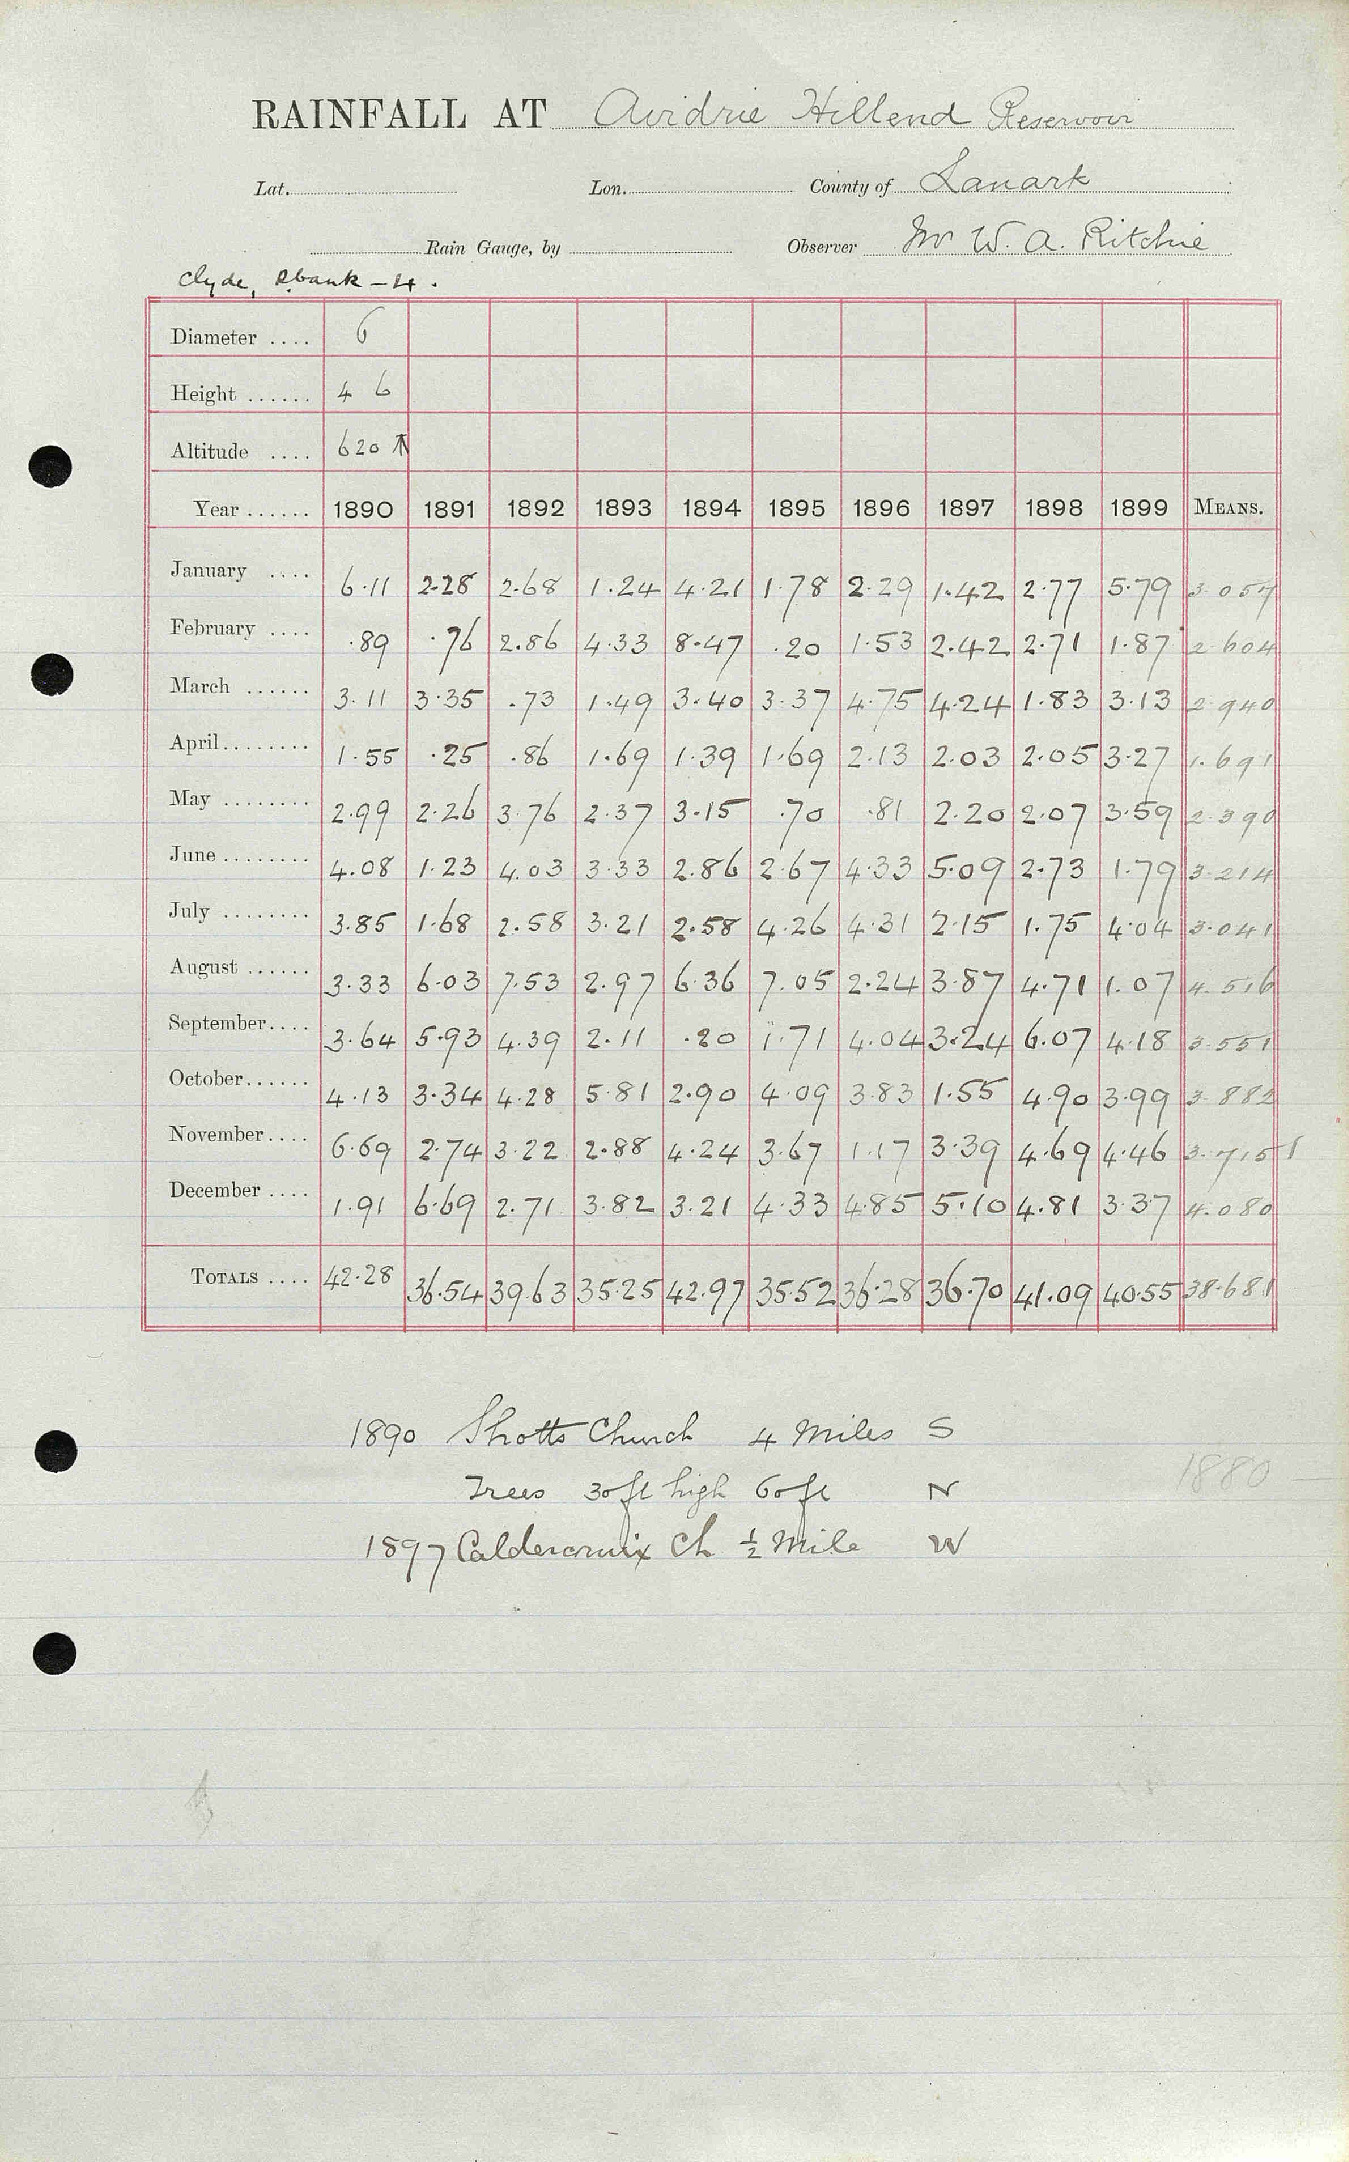 RAINFALL AT Airdrie Hillend Reservoir
Lat. Lon. County of Lanark
Rain Gauge, by Observer Mr W. A. Ritchie
Clyde, Rbank - 4.
Diameter .... 6
Height ...... 4 6
Altitude .... 620 ↑
Year ...... 1890 1891 1892 1893 1894 1895 1896 1897 1898 1899 MEANS.
January .... 6.11 2.28 2.68 1.24 4.21 1.78 2.29 1.42 2.77 5.79 3.057
February .... .89 .76 2.86 4.33 8.47 .20 1.53 2.42 2.71 1.87 2.604
March ...... 3.11 3.35 .73 1.49 3.40 3.37 4.75 4.24 1.83 3.13 2.940
April........ 1.55 .25 .86 1.69 1.39 1.69 2.13 2.03 2.05 3.27 1.691
May ........ 2.99 2.26 3.76 2.37 3.15 .70 .81 2.20 2.07 3.59 2.390
June ........ 4.08 1.23 4.03 3.33 2.86 2.67 4.33 5.09 2.73 1.79 3.214
July ........ 3.85 1.68 2.58 3.21 2.58 4.26 4.31 2.15 1.75 4.04 3.041
August ...... 3.33 6.03 7.53 2.97 6.36 7.05 2.24 3.87 4.71 1.07 4.516
September.... 3.64 5.93 4.39 2.11 .20 1.71 4.04 3.24 6.07 4.18 3.551
October...... 4.13 3.34 4.28 5.81 2.90 4.09 3.83 1.55 4.90 3.99 3.882
November.... 6.69 2.74 3.22 2.88 4.24 3.67 1.17 3.39 4.69 4.46 3.715 1
December .... 1.91 6.69 2.71 3.82 3.21 4.33 4.85 5.10 4.81 3.37 4.080
TOTALS .... 42.28 36.54 39.63 35.25 42.97 35.52 36.28 36.70 41.09 40.55 38.681
1890 Shotts Church 4 Miles S
Trees 30ft high 60ft N
1880
1897 Caldercruix Ch ½ Mile W